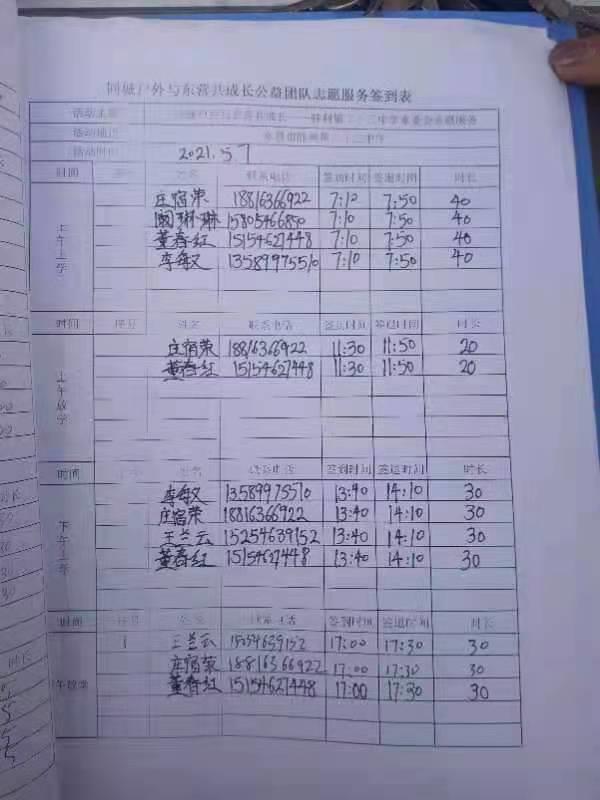 同城户外与东营共成长公益团队志愿服务签到表
活动主题
活动地点
活动时间 2021.5 7
时间 序号 姓名 联系电话 签到时间 签退时间 时长
上午上学
庄宿荣 18816366922 7:12 7:50 40
阚琳琳 15805466850 7:10 7:50 40
董春红 15154627448 7:10 7:50 40
李每义 13589975510 7:10 7:50 40
时间 序号 姓名 联系电话 签到时间 签退时间 时长
上午放学
庄宿荣 18816366922 11:30 11:50 20
董春红 15154627448 11:30 11:50 20
时间 姓名 联系电话 签到时间 签退时间 时长
下午上学
李每义 13589975510 13:40 14:10 30
庄宿荣 18816366922 13:40 14:10 30
王兰云 15254639152 13:40 14:10 30
董春红 15154627448 13:40 14:10 30
时间 序号 姓名 联系电话 签到时间 签退时间 时长
下午放学
1 王兰云 17:00 17:30 30
庄宿荣 18816366922 17:00 17:30 30
董春红 15154627448 17:00 17:30 30
时长